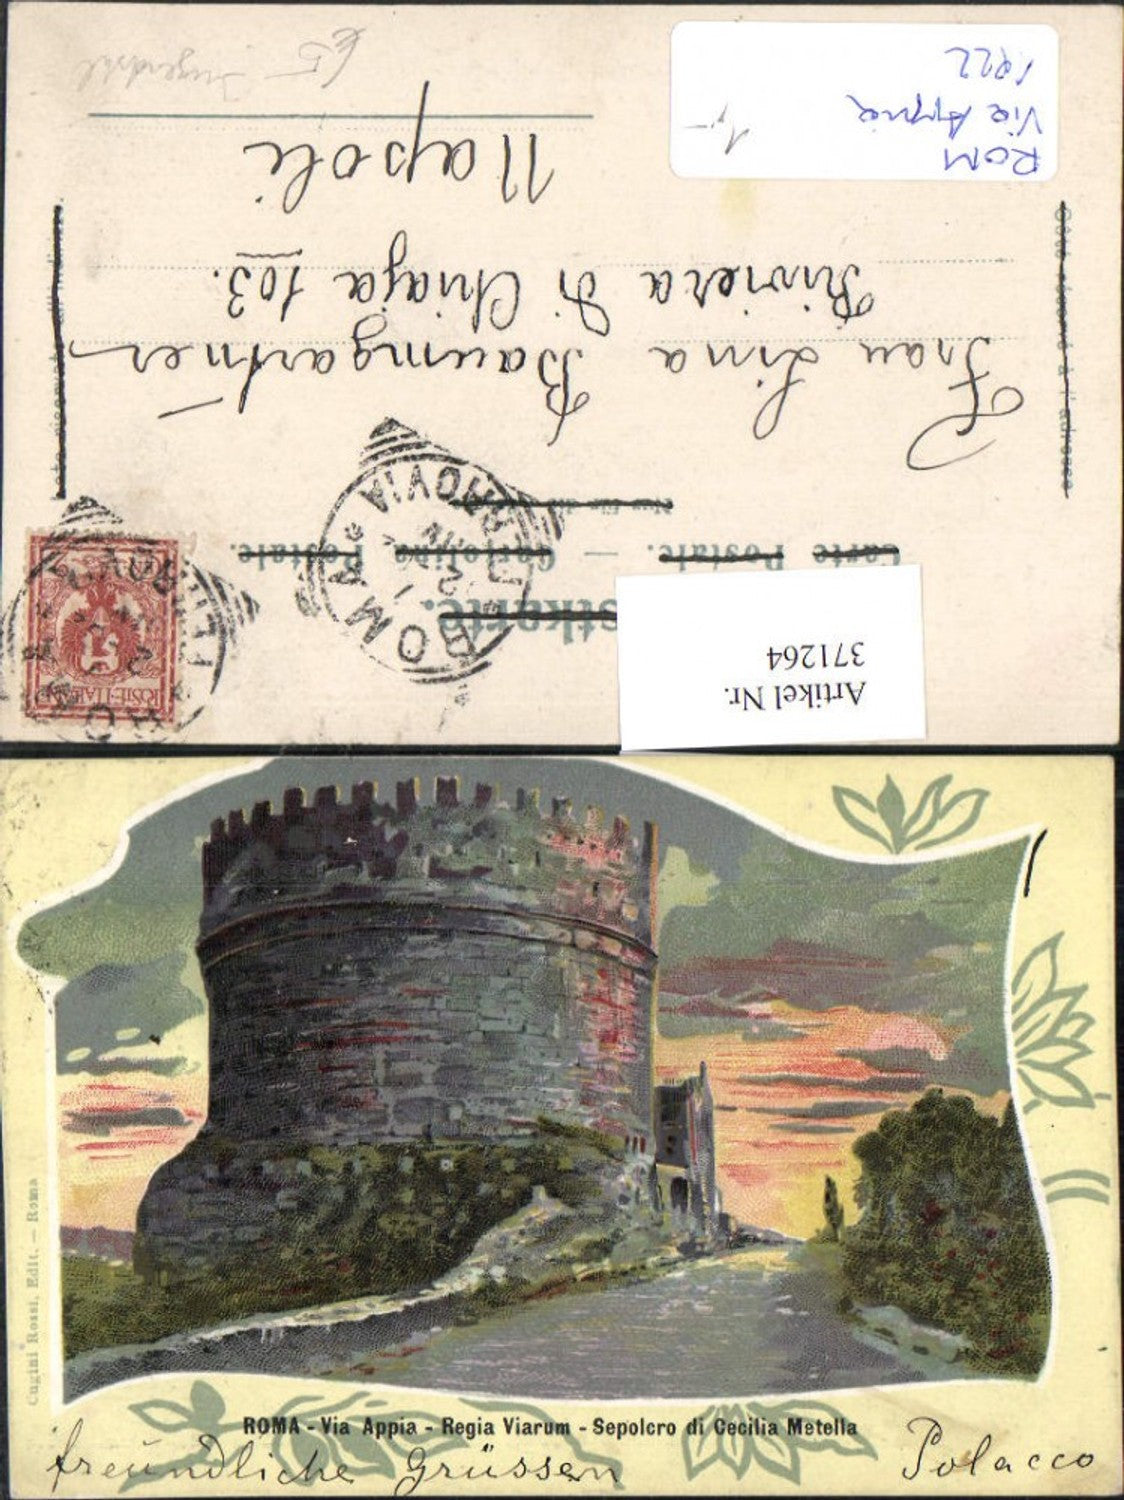 Postkarte.
Carte Postale. — Cartolina Postale.
Côté réservé à l'adresse
Frau Lina Baumgartner
Riviera di Chiaja 103.
Napoli
ROMA
FERROVIA
POSTE ITALIANE
2
ROM
Via Appia
1922
1,-
€ 5 Jugendstil
Artikel Nr.
371264
Cugini Rossi, Edit. — Roma
ROMA - Via Appia - Regia Viarum - Sepolcro di Cecilia Metella
freundliche Grüssen Polacco